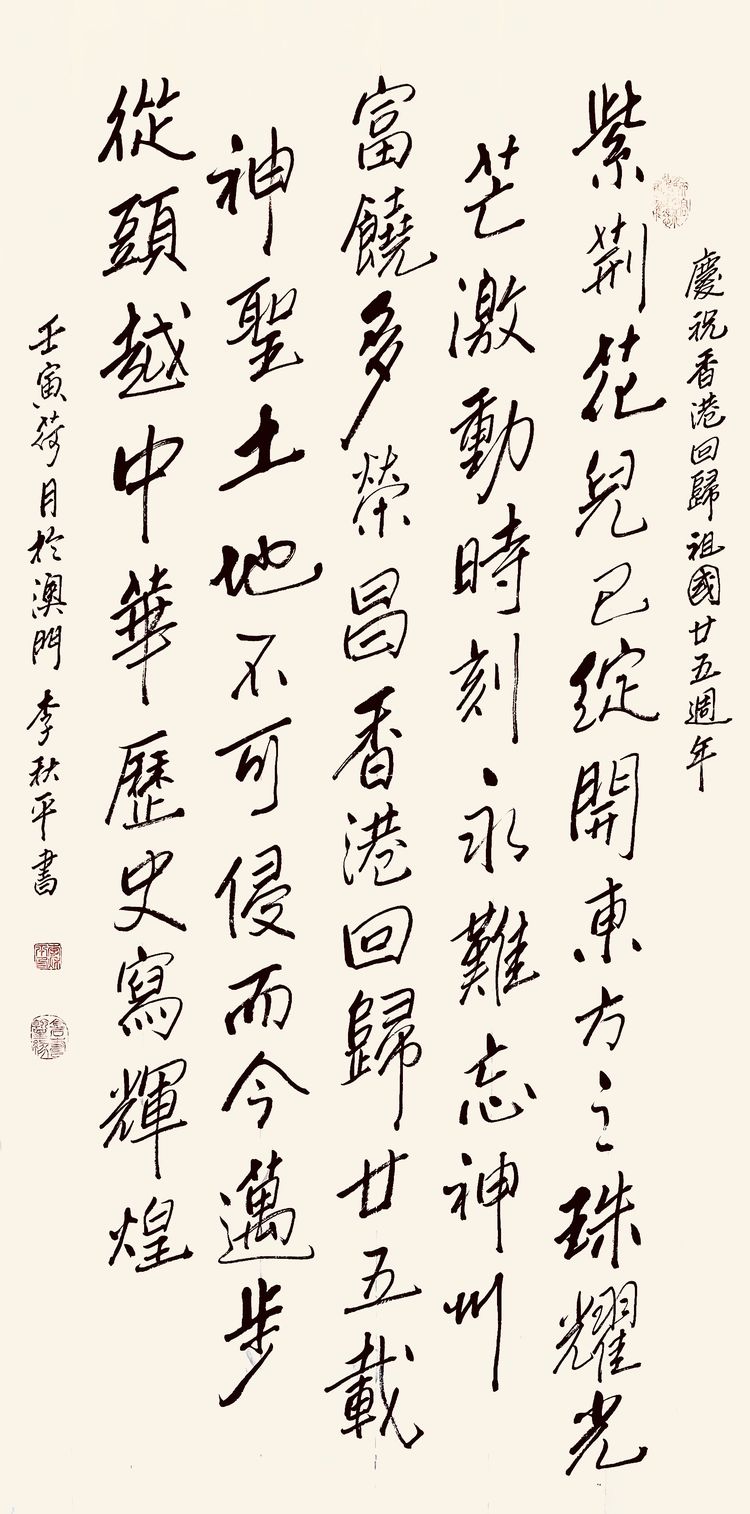 慶祝香港回歸祖國廿五週年
紫荊花兒已綻開東方之珠耀光
芒激動時刻永難忘神州
富饒多榮昌香港回歸廿五載
神聖土地不可侵而今邁步
從頭越中華歷史寫輝煌
壬寅荷月於澳門李秋平書